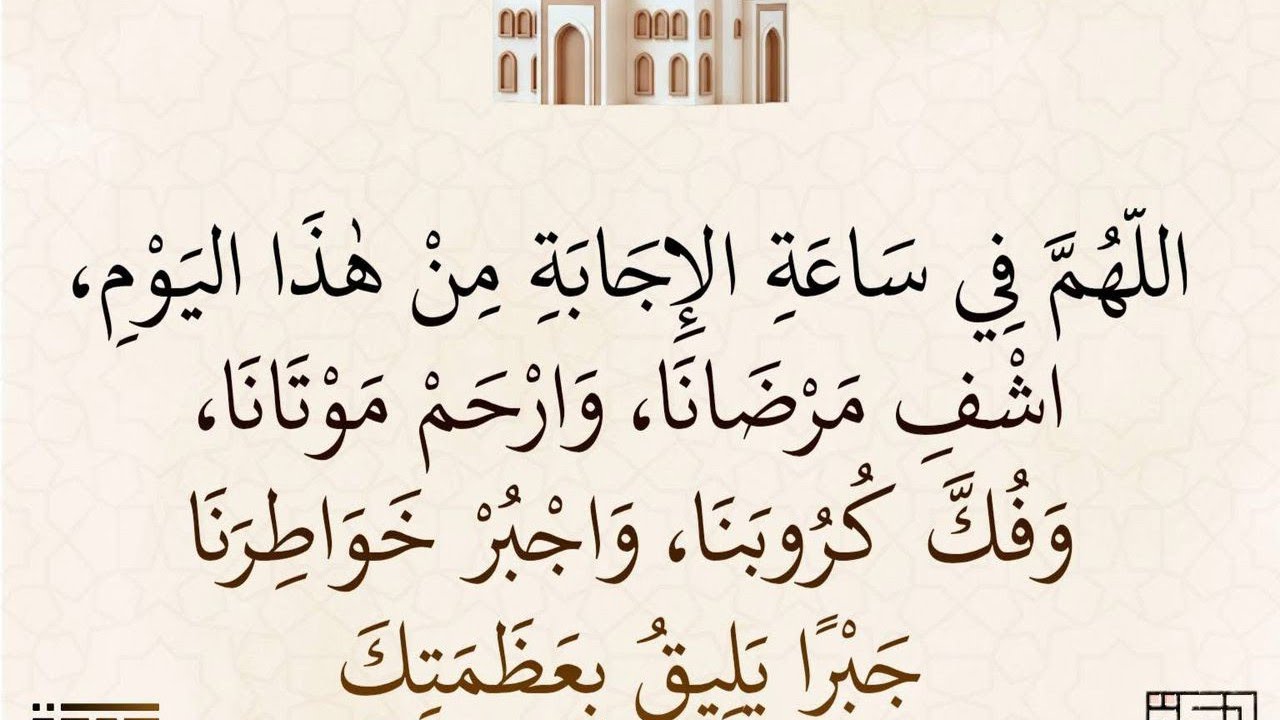 اللّهُمَّ فِي سَاعَةِ الإِجَابَةِ مِنْ هٰذَا اليَوْمِ،
اشْفِ مَرْضَانَا، وَارْحَمْ مَوْتَانَا،
وَفُكَّ كُرُوبَنَا، وَاجْبُرْ خَوَاطِرَنَا
جَبْرًا يَلِيقُ بعَظَمَتِكَ